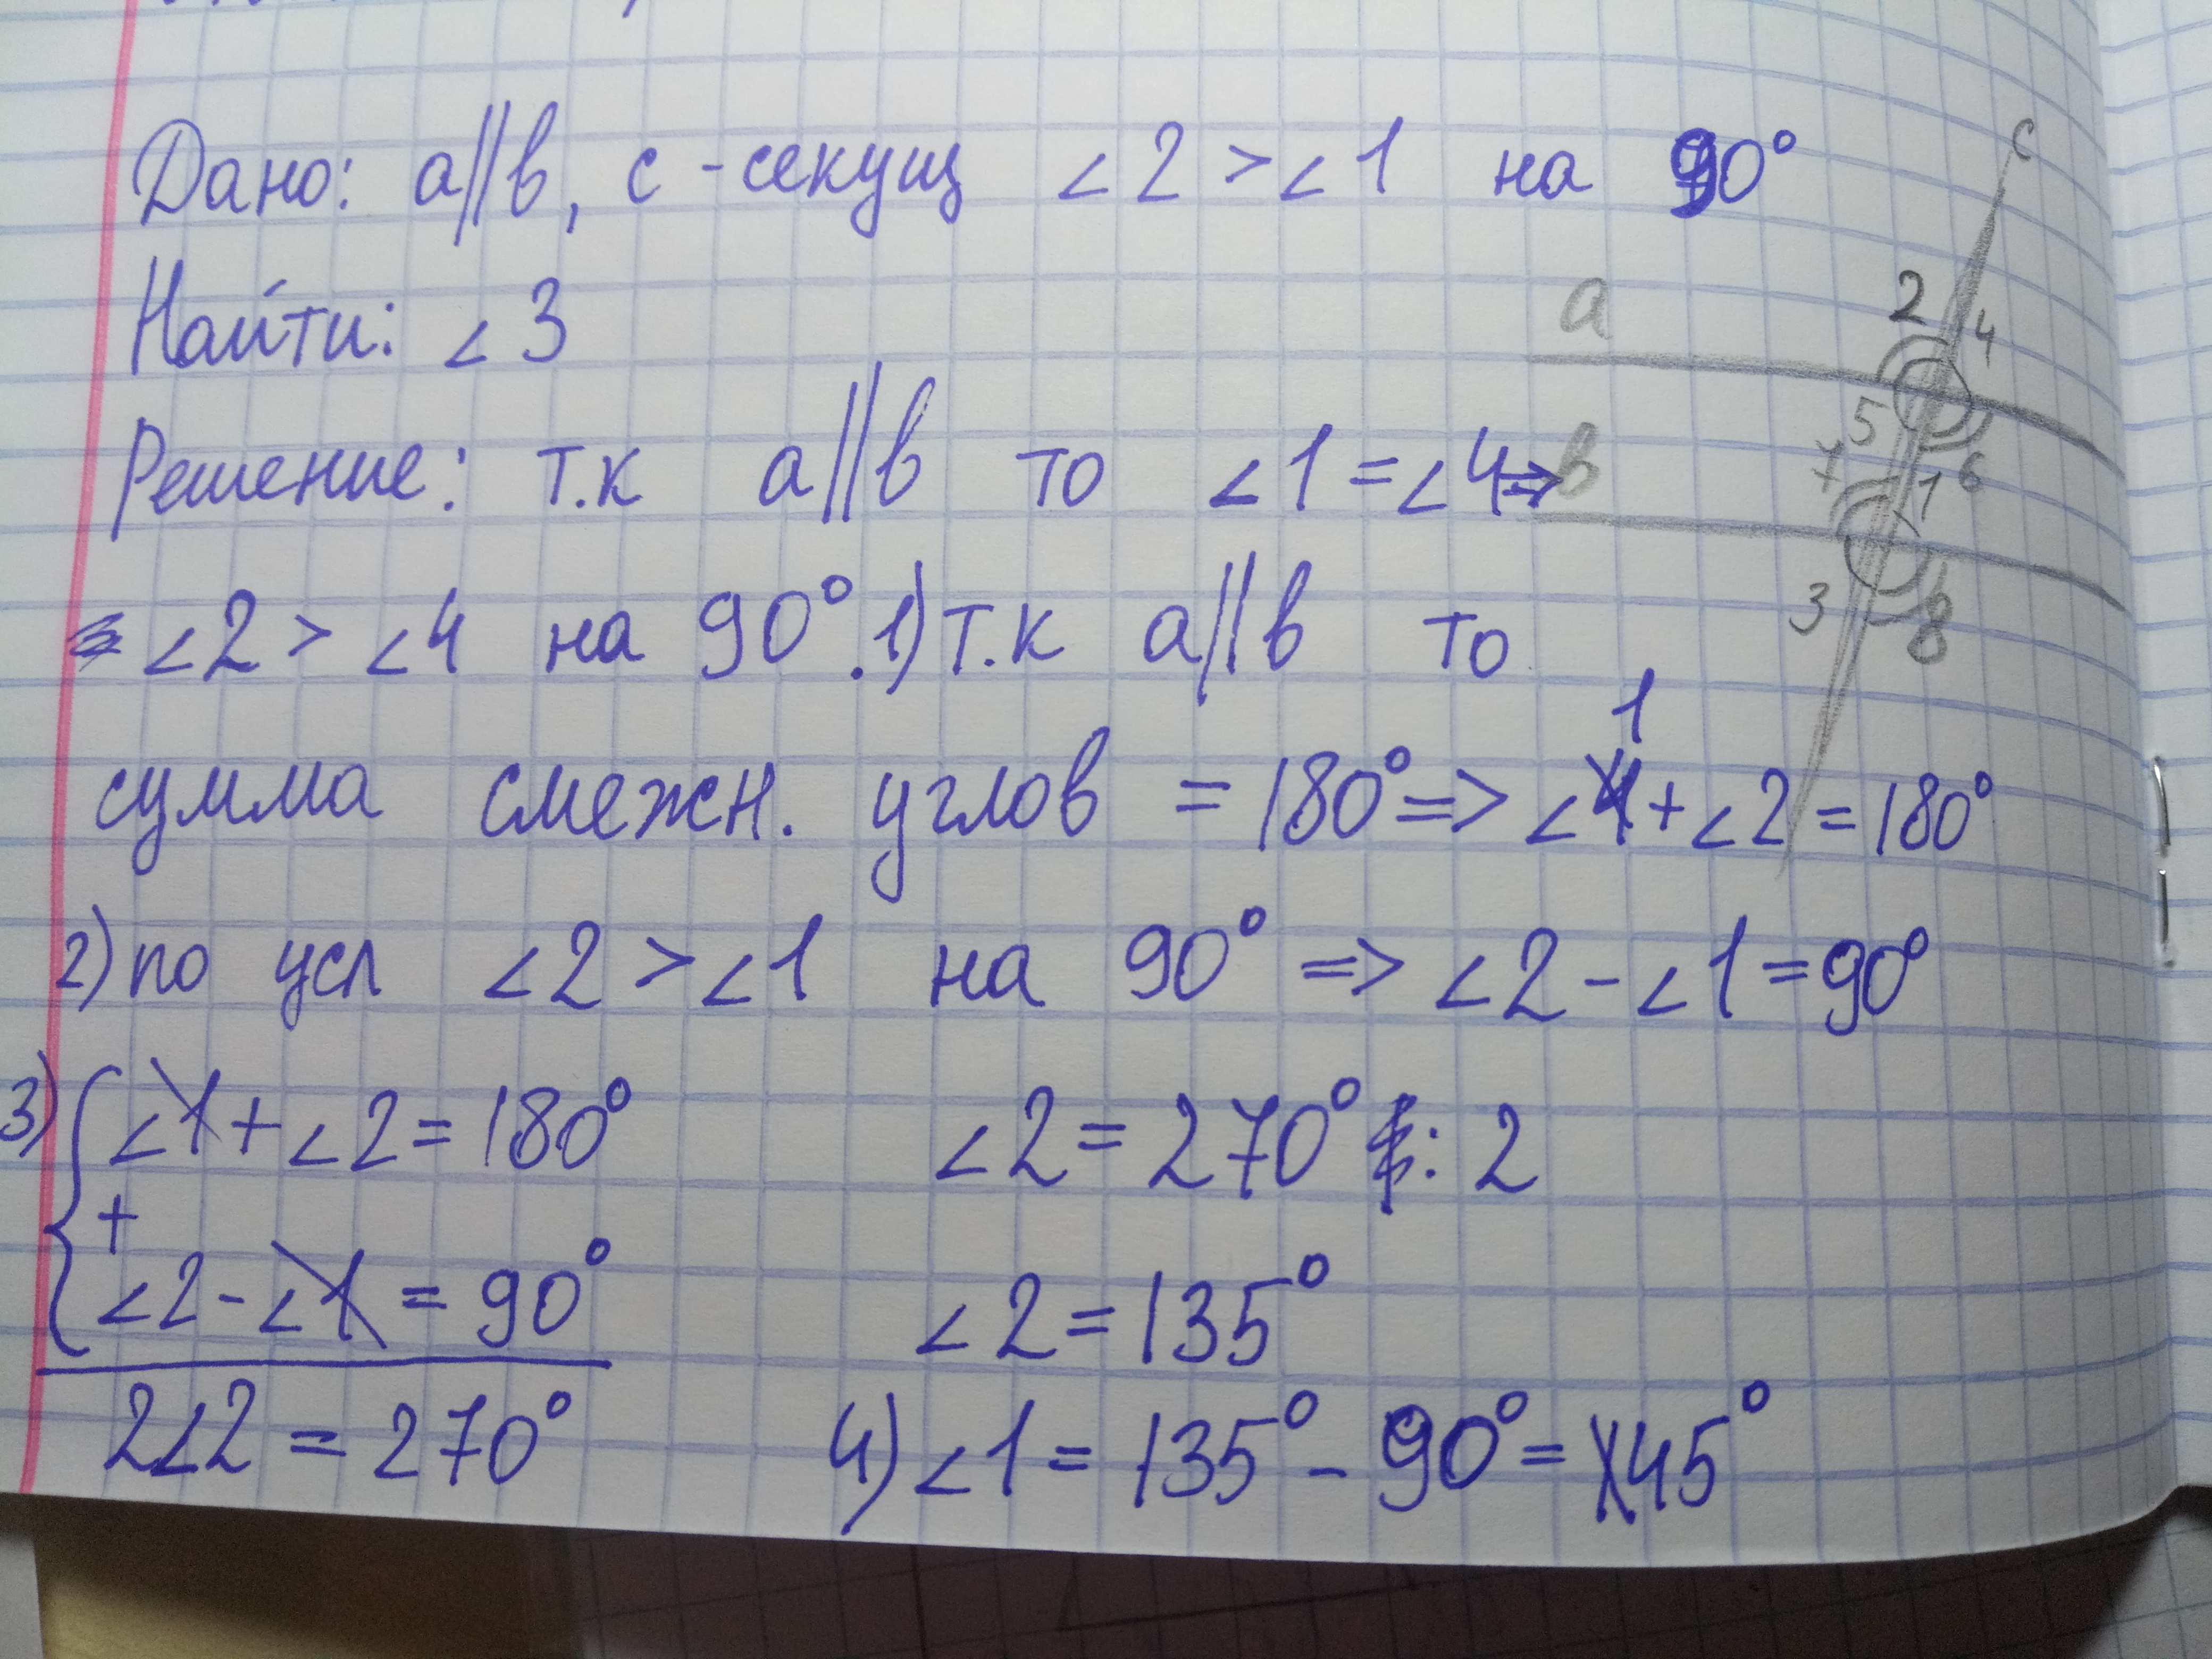 Дано: a||b, c - секущ ∠2 > ∠1 на 90°
Найти: ∠3
Решение: т.к a||b то ∠1 = ∠4 =>
∠2 > ∠4 на 90°. 1) т.к a||b то
сумма смежн. углов = 180° => ∠1 + ∠2 = 180°
2) по усл ∠2 > ∠1 на 90° => ∠2 - ∠1 = 90°
3) ∠1 + ∠2 = 180°
+
∠2 - ∠1 = 90°
2∠2 = 270°
∠2 = 270° : 2
∠2 = 135°
4) ∠1 = 135° - 90° = 45°
c
a
2
4
5
6
b
7
1
3
8